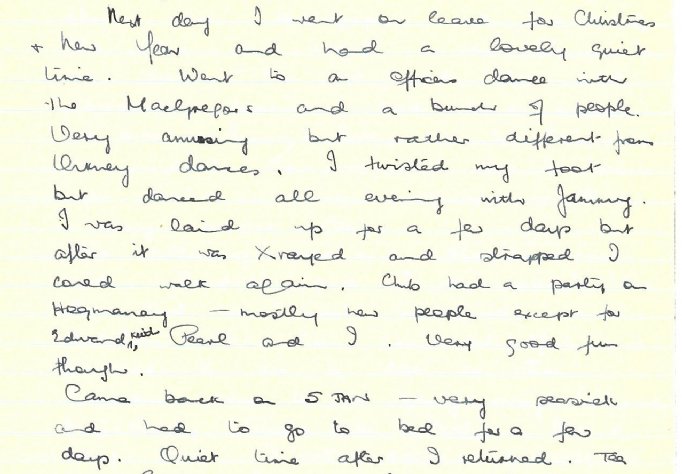 Next day I went on leave for Christmas
+ New Year and had a lovely quiet
time. Went to a officers dance with
the MacGregors and a bunch of people.
Very amusing but rather different from
Orkney dances. I twisted my foot
but danced all evening with Jammy.
I was laid up for a few days but
after it was Xrayed and strapped I
could walk again. Club had a party on
Hogmanay – mostly new people except for
Edward, Keith, Pearl and I. Very good fun
though.
Came back on 5 JAN – very seasick
and had to go to bed for a few
days. Quiet time after I returned. Too